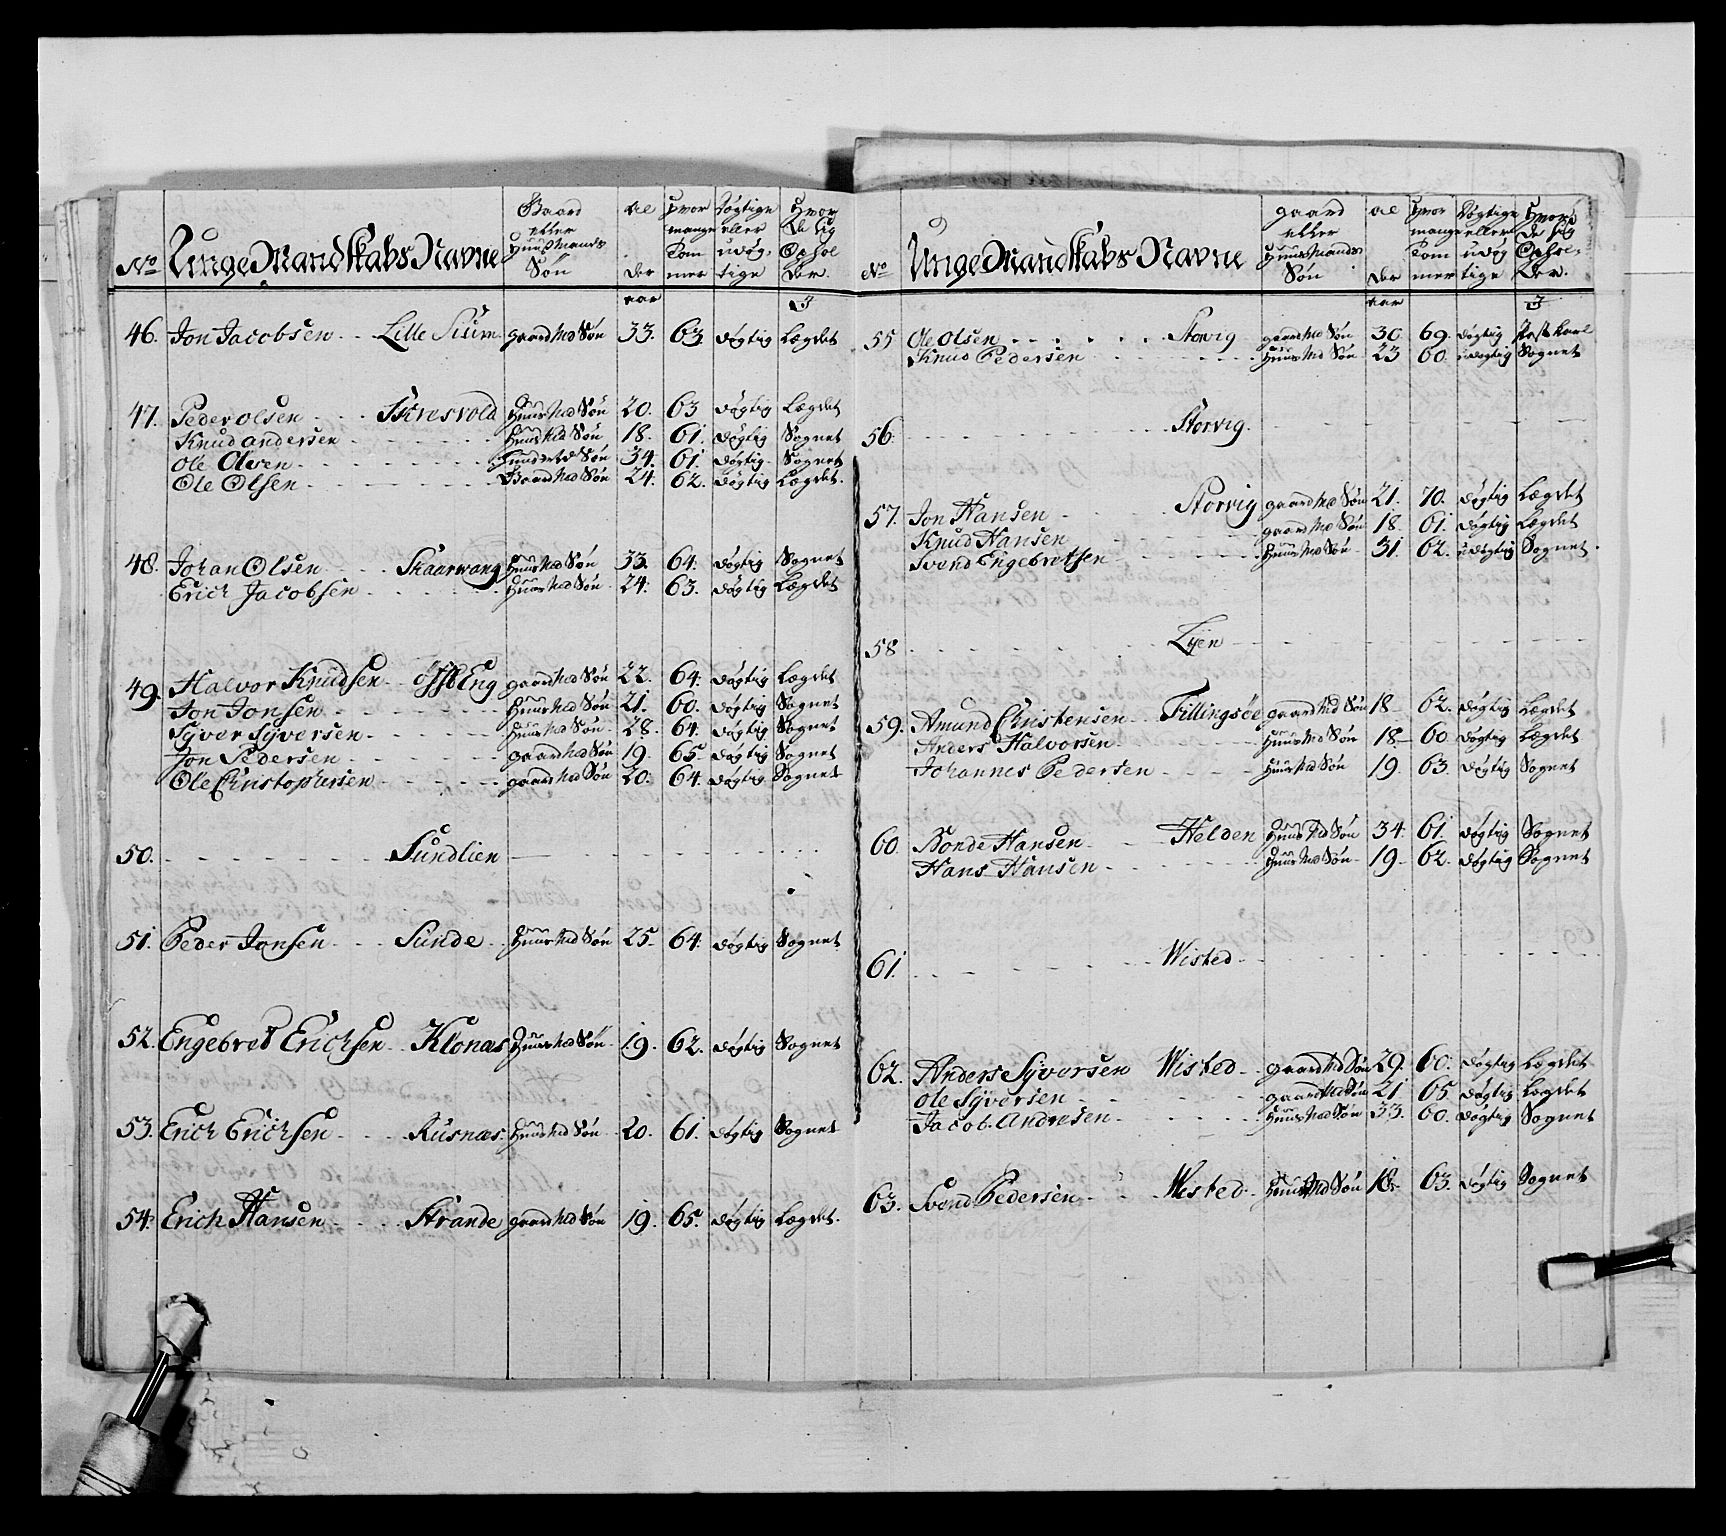 No Unge Mandskabs Navne Gaard eller Huusmands Søn Al der aar Hvor mange Tom mer Døgtige eller udøg tige Hvor De sig Ophol Der. I
46. Jon Jacobsen Lille Siüm gaard Md Søn 33. 63 døgtig Lægdet
47. Peder Olsen Skresvold Huus Md Søn 20. 63 døgtig Lægdet
Knud andersen Huus Md Søn 18. 61. døgtig Sognet
Ole Olsen Huus Md Søn 34. 61. døgtig Sognet
Ole Olsen Gaard Md Søn 24. 62. døgtig Lægdet.
48. Johan Olsen Skaarwang Huus Md Søn 33. 64. døgtig Sognet
Erich Jacobsen Huus Md Søn 24. 63. døgtig Lægdet
49. Halvor Knudsen Eng gaard Md Søn 22. 64. døgtig Lægdet
Jon Jonsen Huus Md Søn 21. 60. døgtig Sognet
Syver Syversen Huus Md Søn 28. 64. døgtig Sognet
Jon Pedersen gaard Md Søn 19. 65. døgtig Sognet
Ole Christophersen gaard Md Søn 20. 64. døgtig Sognet
50. Sundlien
51. Peder Jonsen Sunde Huus Md Søn 25. 64. døgtig Sognet
52. Engebret Erichsen Klonæs Huus Md Søn 19. 62. døgtig Sognet
53. Erich Erichsen Rusnæs Huus Md Søn 20. 61. døgtig Sognet
54. Erich Hansen Strande gaard Md Søn 19. 65. døgtig Lægdet.
No Unge Mandskabs Navne gaard eller Huusmands Søn al der aar Hvor mange Tom mer Døgtige eller udøg tige Hvor De sig Ophol Der. I
55 Ole Olsen Storvig gaard Md Søn 30. 69. døgtig Postkarl
Knud Pedersen Huus Md Søn 23 60. udøgtig Sognet
56. Storvig.
57. Jon Hansen Storvig gaard Md Søn 21. 70. døgtig Lægdet
Knud Hansen gaard Md Søn 18 61. døgtig Lægdet
Svend Engebretsen Huus Md Søn 31. 62. udøgtig Sognet.
58 Lyen
59. Amund Christensen Fillingsøe gaard Md Søn 18 62. døgtig Lægdet
Anders Halvorsen Huus Md Søn 18 60 døgtig Lægdet
Johannes Pedersen Huus Md Søn 19. 63. døgtig Sognet
60. Bonde Hansen Helden Huus Md Søn 34. 61. døgtig Sognet
Hans Hansen Huus Md Søn 19. 62. døgtig Sognet
61. Wisted
62. Anders Syversen Wisted gaard Md Søn 29. 60. døgtig Lægdet
Ole Syversen gaard Md Søn 21 65. døgtig Lægdet
Jacob Andresen Huus Md Søn 33. 60. døgtig Sognet
63. Svend Pedersen Wisted Huus Md Søn 18. 63. døgtig Sognet